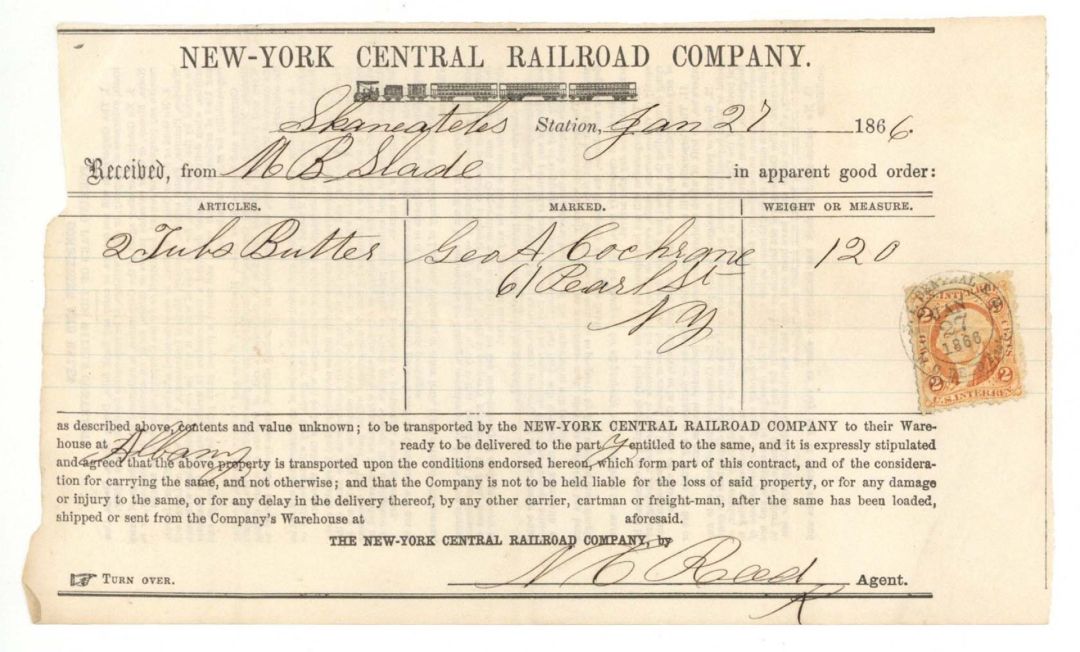 NEW-YORK CENTRAL RAILROAD COMPANY.
Skaneateles Station, Jan 27 1866.
Received, from M B Slade in apparent good order:
ARTICLES. MARKED. WEIGHT OR MEASURE.
2 Tubs Butter Geo A Cochrane 120
61 Pearl St
NY
U.S. INTER. REV.
2 2
TWO CENTS
JAN
27
1866
2 2
U.S. INTER. REV.
as described above, contents and value unknown; to be transported by the NEW-YORK CENTRAL RAILROAD COMPANY to their Ware-
house at Albany ready to be delivered to the party entitled to the same, and it is expressly stipulated
and agreed that the above property is transported upon the conditions endorsed hereon, which form part of this contract, and of the considera-
tion for carrying the same, and not otherwise; and that the Company is not to be held liable for the loss of said property, or for any damage
or injury to the same, or for any delay in the delivery thereof, by any other carrier, cartman or freight-man, after the same has been loaded,
shipped or sent from the Company's Warehouse at aforesaid.
THE NEW-YORK CENTRAL RAILROAD COMPANY, by
TURN OVER. Agent.